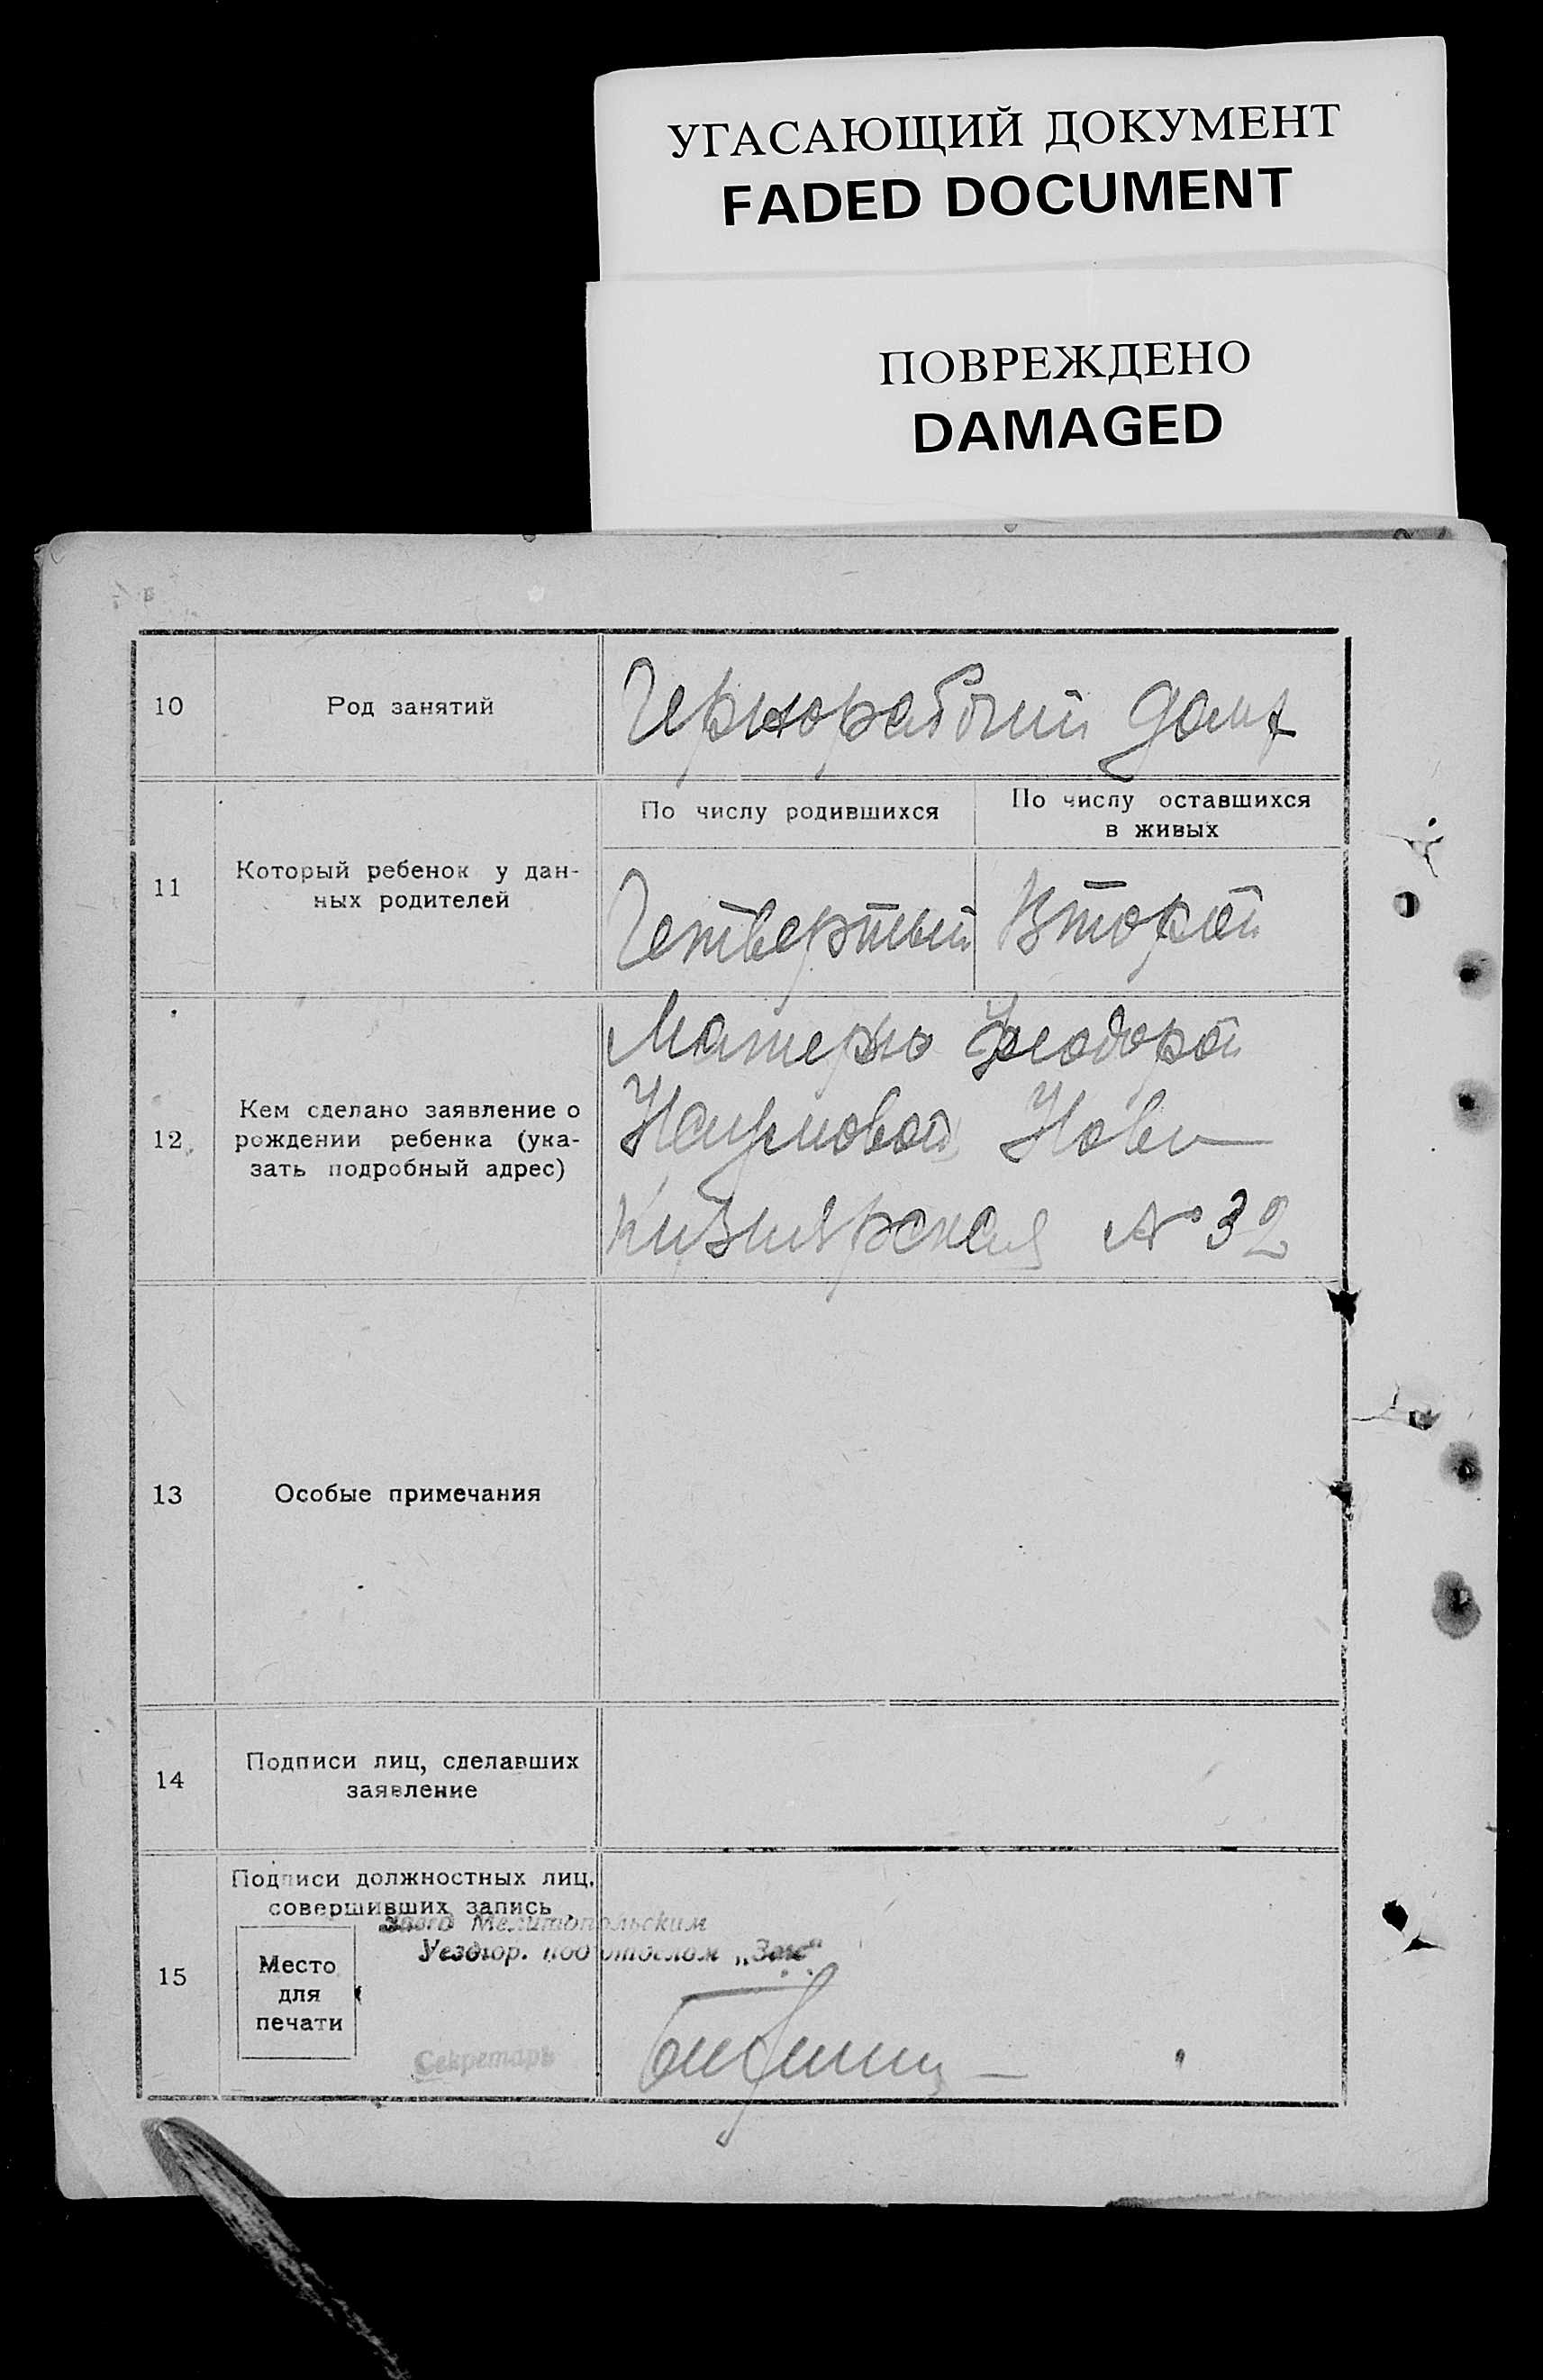 УГАСАЮЩИЙ ДОКУМЕНТ
FADED DOCUMENT
ПОВРЕЖДЕНО
DAMAGED
10
Род занятий
Чернорабочий
11
Который ребенок у дан-
ных родителей
По числу родившихся
По числу оставшихся
в живых
Четвертый
Второй
12
Кем сделано заявление о
рождении ребенка (ука-
зать подробный адрес)
Матерью Феодорой
Наумовой Ново
Кизиярская № 32
13
Особые примечания
14
Подписи лиц, сделавших
заявление
15
Подписи должностных лиц,
совершивших запись
Мелитопольским
Уездгор. подотделом „Загс“
Место
для
печати
Секретарь